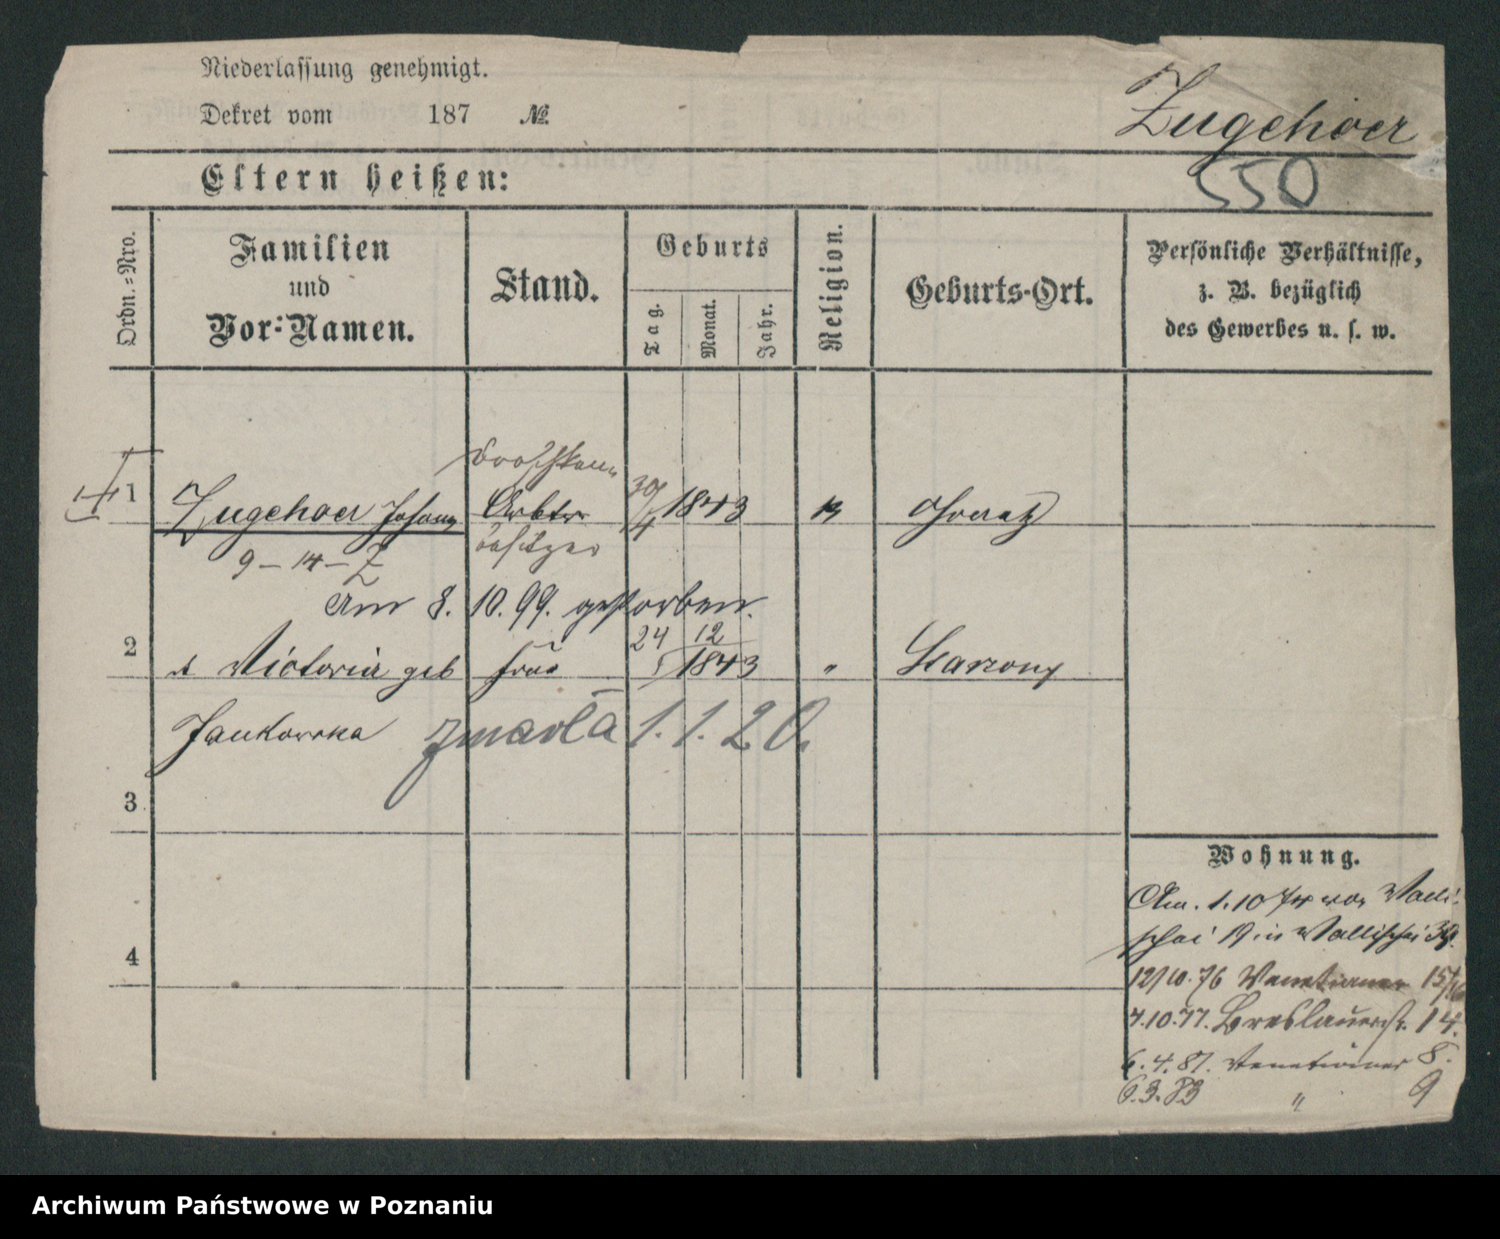 Niederlassung genehmigt.
Dekret vom 187 №
Zugehoer
550
Eltern heißen:
Ordn.=Nro.
Familien
und
Vor=Namen.
Stand.
Geburts
Tag.
Monat.
Jahr.
Religion.
Geburts-Ort.
Persönliche Verhältnisse,
z. B. bezüglich
des Gewerbes u. s. w.
Droschken
1 Zugehoer Johann Arbtr 30/4 1843
besitzer
9 – 14 – Z
Am 8. 10. 99. gestorben.
24 12
2 Victoria geb Frau 1843 "
Jankowska zmarła 1. 1. 20.
3
Wohnung.
Am. 1. 10 74 von Walli-
schei 19 in Wallischei 39.
4
12/10. 76 Venetianer 15/16
7. 10. 77. Breslauerstr. 14.
6. 4. 81. Venetianer 8.
6. 3. 83 " 9
Archiwum Państwowe w Poznaniu